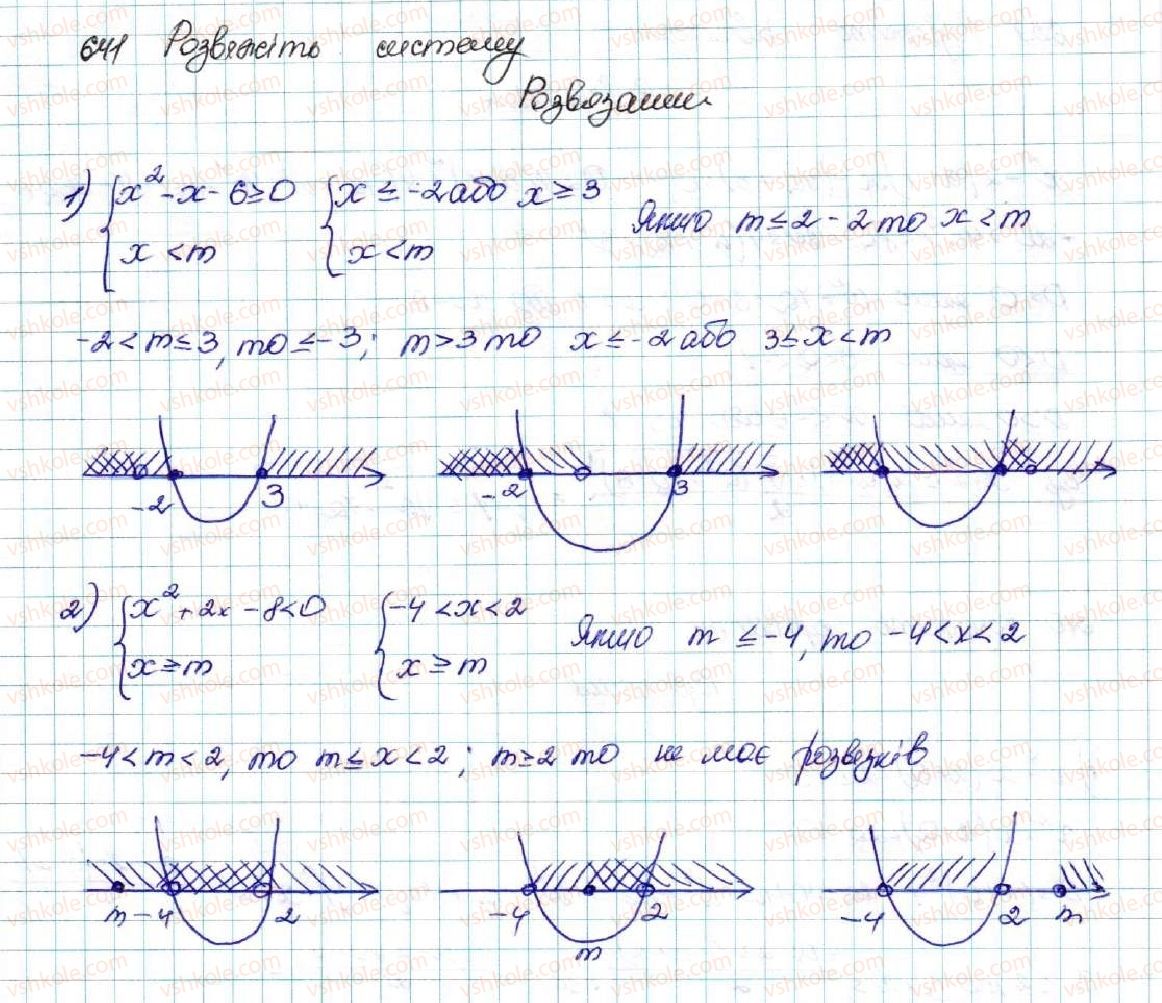 641 Розвяжіть систему
Розвязання
1) { x² - x - 6 ≥ 0 { x ≤ -2 або x ≥ 3 Якщо m ≤ 2 - 2 то x < m
x < m x < m
-2 < m ≤ 3, то ≤ -3; m > 3 то x ≤ -2 або 3 ≤ x < m
-2 3 -2 3
2) { x² + 2x - 8 < 0 { -4 < x < 2 Якщо m ≤ -4, то -4 < x < 2
x ≥ m x ≥ m
-4 < m < 2, то m ≤ x < 2; m ≥ 2 то не має розвезків
m -4 2 -4 m 2 -4 2 m